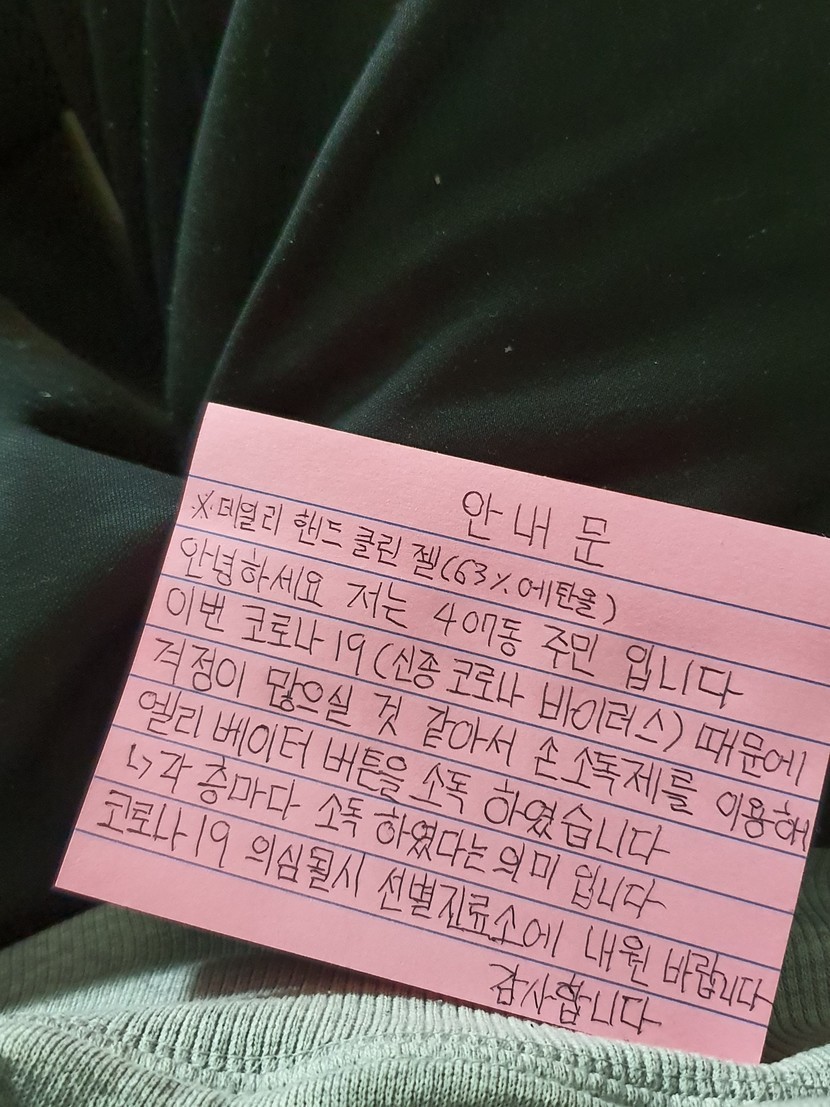 안내문
※데일리 핸드 클린 젤(63%에탄올)
안녕하세요 저는 407동 주민 입니다
이번 코로나19(신종코로나 바이러스) 때문에
걱정이 많으실 것 같아서 손소독제를 이용해
엘리베이터 버튼을 소독 하였습니다
↳각 층마다 소독 하였다는 의미 입니다
코로나19 의심될시 선별진료소에 내원 바랍니다
감사합니다